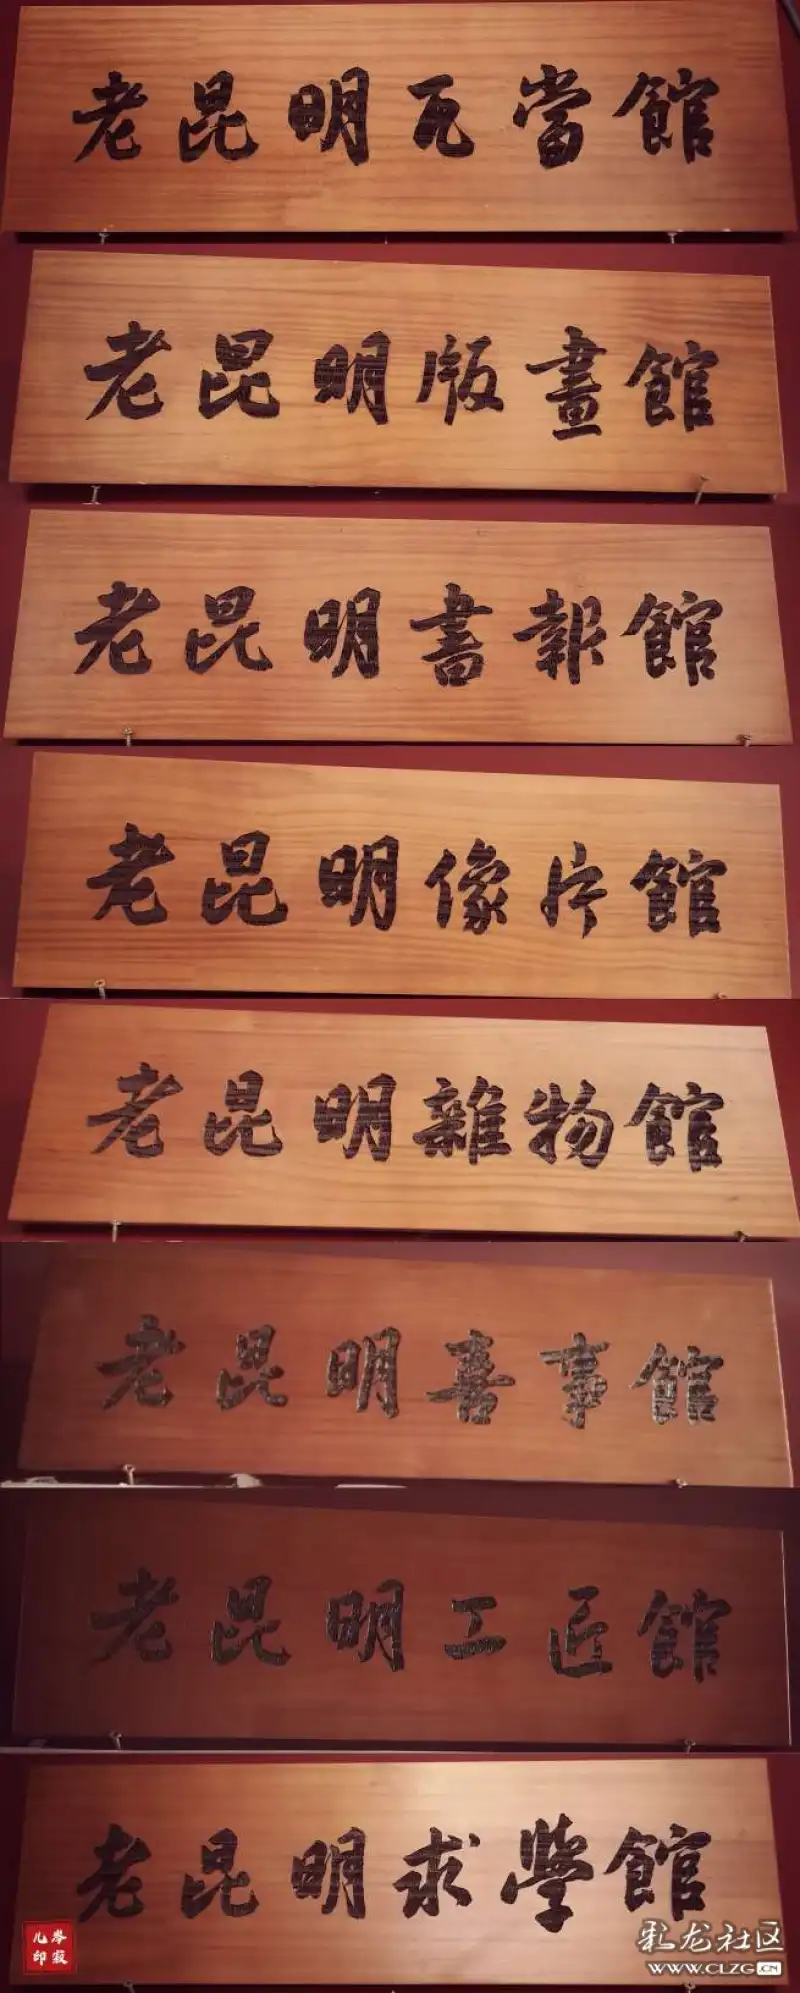 老昆明瓦當館
老昆明版畫館
老昆明書報館
老昆明像片館
老昆明雜物館
老昆明喜事館
老昆明工匠館
老昆明求學館
岑寂
儿印
彩龙社区
WWW.CLZG.CN